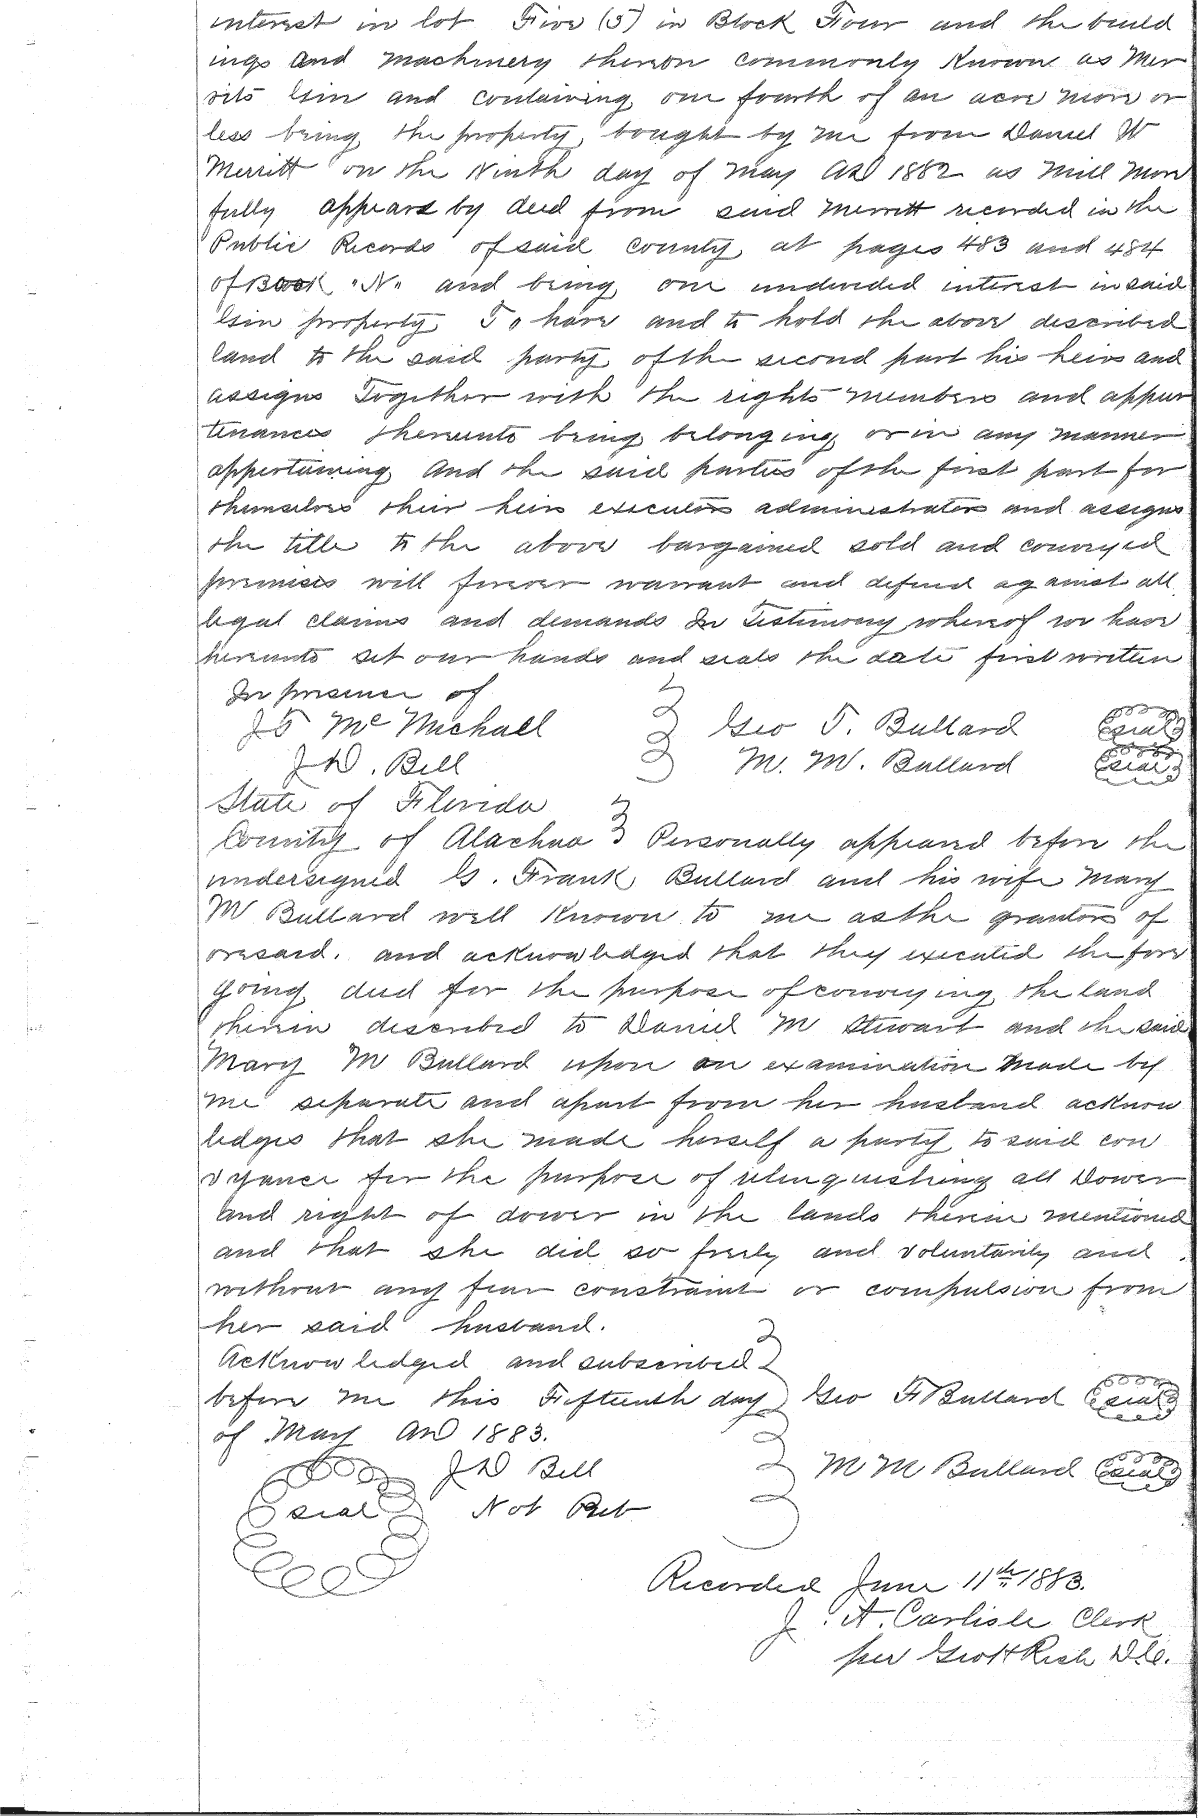 interest in lot Five (5) in Block Four and the build
ings and machinery thereon commonly Known as Mer
rits Gin and containing one fourth of an acre more or
less being the property bought by me from Daniel W
Merritt on the Ninth day of May AD 1882 as will more
fully appears by deed from said Merritt recorded in the
Public Records of said county at pages 483 and 484
of Book "N" and being one undivided interest in said
Gin property To have and to hold the above described
land to the said party of the second part his heirs and
assigns Together with the rights members and appur
tenances thereunto being belonging or in any manner
appertaining And the said parties of the first part for
themselves their heirs executors administrators and assigns
the title to the above bargained sold and conveyed
premises will forever warrant and defend against all
legal claims and demands In Testimony whereof we have
hereunto set our hands and seals the date first written
In presence of
J T McMichael Geo T. Bullard seal
J D. Bell M. M. Bullard seal
State of Florida
County of Alachua Personally appeared before the
undersigned G. Frank Bullard and his wife Mary
M Bullard well Known to me as the grantors of
oresaid. and acknowledged that they executed the fore
going deed for the purpose of conveying the land
therein described to Daniel M Stewart and the said
Mary M Bullard upon an examination made by
me separate and apart from her husband acknow
ledges that she made herself a party to said con
vyance for the purpose of relinquishing all Dower
and right of dower in the lands therein mentioned
and that she did so freely and voluntarily and
without any fear constraint or compulsion from
her said husband.
Acknowledged and subscribed
before me this Fifteenth day Geo F Bullard seal
of May AD 1883.
J D Bell M M Bullard seal
seal Not Pub
Recorded June 11th 1883.
J. A. Carlisle Clerk
per Geo H Rich D.C.